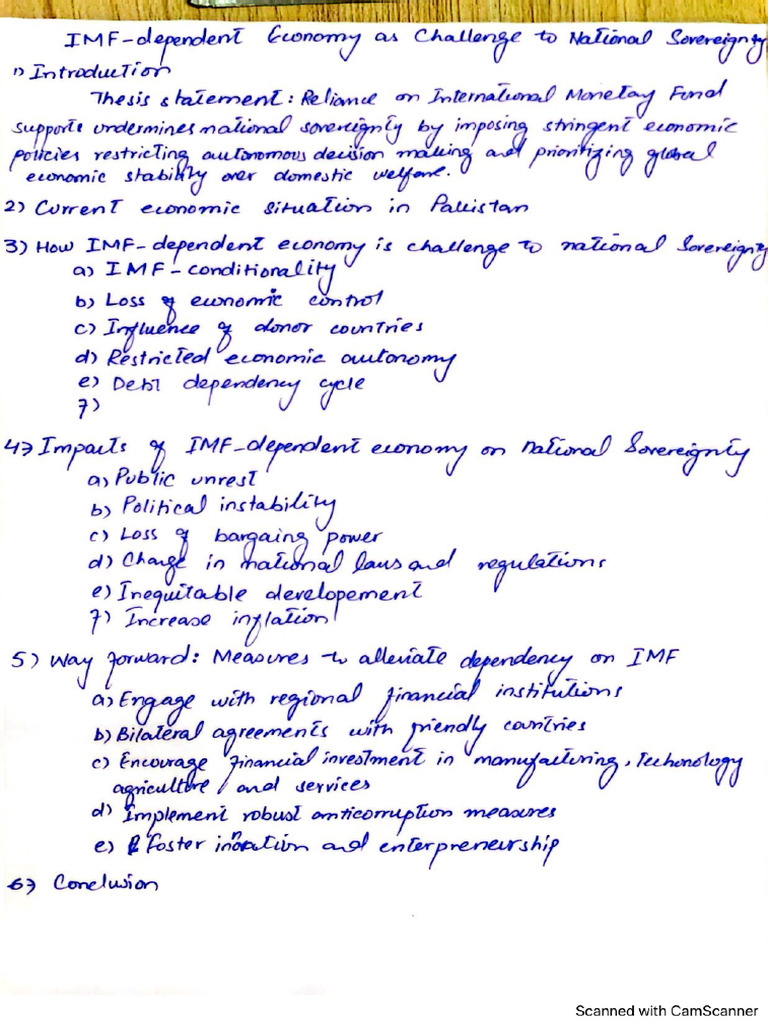 IMF-dependent Economy as Challenge to National Sovereignty
1) Introduction
Thesis statement: Reliance on International Monetary Fund
supports undermines national sovereignty by imposing stringent economic
policies restricting autonomous decision making and prioritizing global
economic stability over domestic welfare.
2) Current economic situation in Pakistan
3) How IMF-dependent economy is challenge to national Sovereignty
a) IMF-conditionality
b) Loss of economic control
c) Influence of donor countries
d) Restricted economic autonomy
e) Debt dependency cycle
7)
4) Impacts of IMF-dependent economy on national Sovereignty
a) Public unrest
b) Political instability
c) Loss of bargaing power
d) Change in national laws and regulations
e) Inequitable developement
7) Increase inflation
5) Way forward: Measures to alleviate dependency on IMF
a) Engage with regional financial institutions
b) Bilateral agreements with friendly countries
c) Encourage financial investment in manufacturing, Techonology
agriculture and services
d) Implement robust anticorruption measures
e) foster and enterpreneurship
6) Conclusion
Scanned with CamScanner